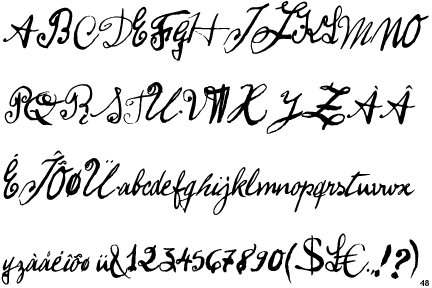 ABCDEFGHIJKLMNO
PQRSTUVWXYZÀÂ
ÉÎÔØÜabcdefghijklmnopqrstuvwx
yzàáéîôøü&1234567890($£€.,!?)
48